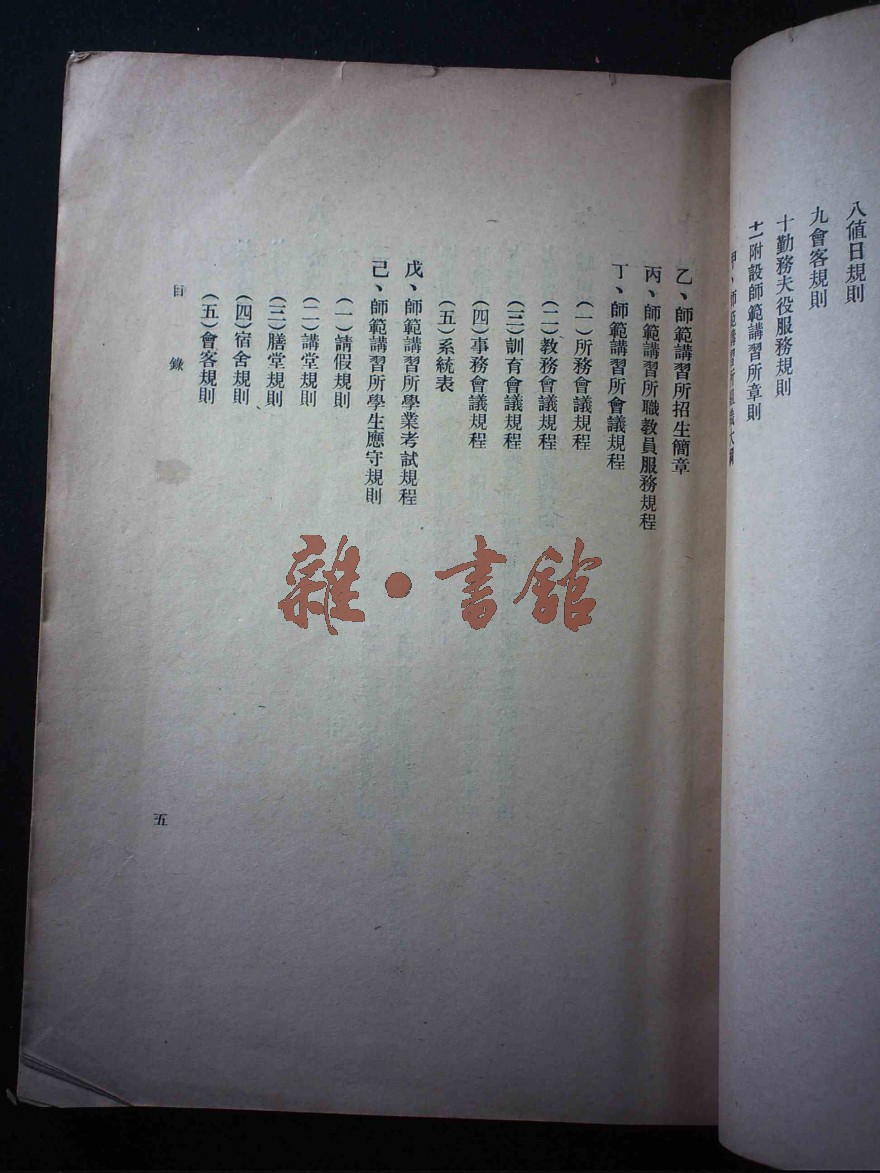 八值日規則
九會客規則
十勤務夫役服務規則
十一附設師範講習所章則
甲、師範講習所組織大綱
乙、師範講習所招生簡章
丙、師範講習所職教員服務規程
丁、師範講習所會議規程
(一)所務會議規程
(二)教務會議規程
(三)訓育會議規程
(四)事務會議規程
(五)系統表
戊、師範講習所學業考試規程
己、師範講習所學生應守規則
(一)請假規則
(二)講堂規則
(三)膳堂規則
(四)宿舍規則
(五)會客規則
目錄
五
雜・書館